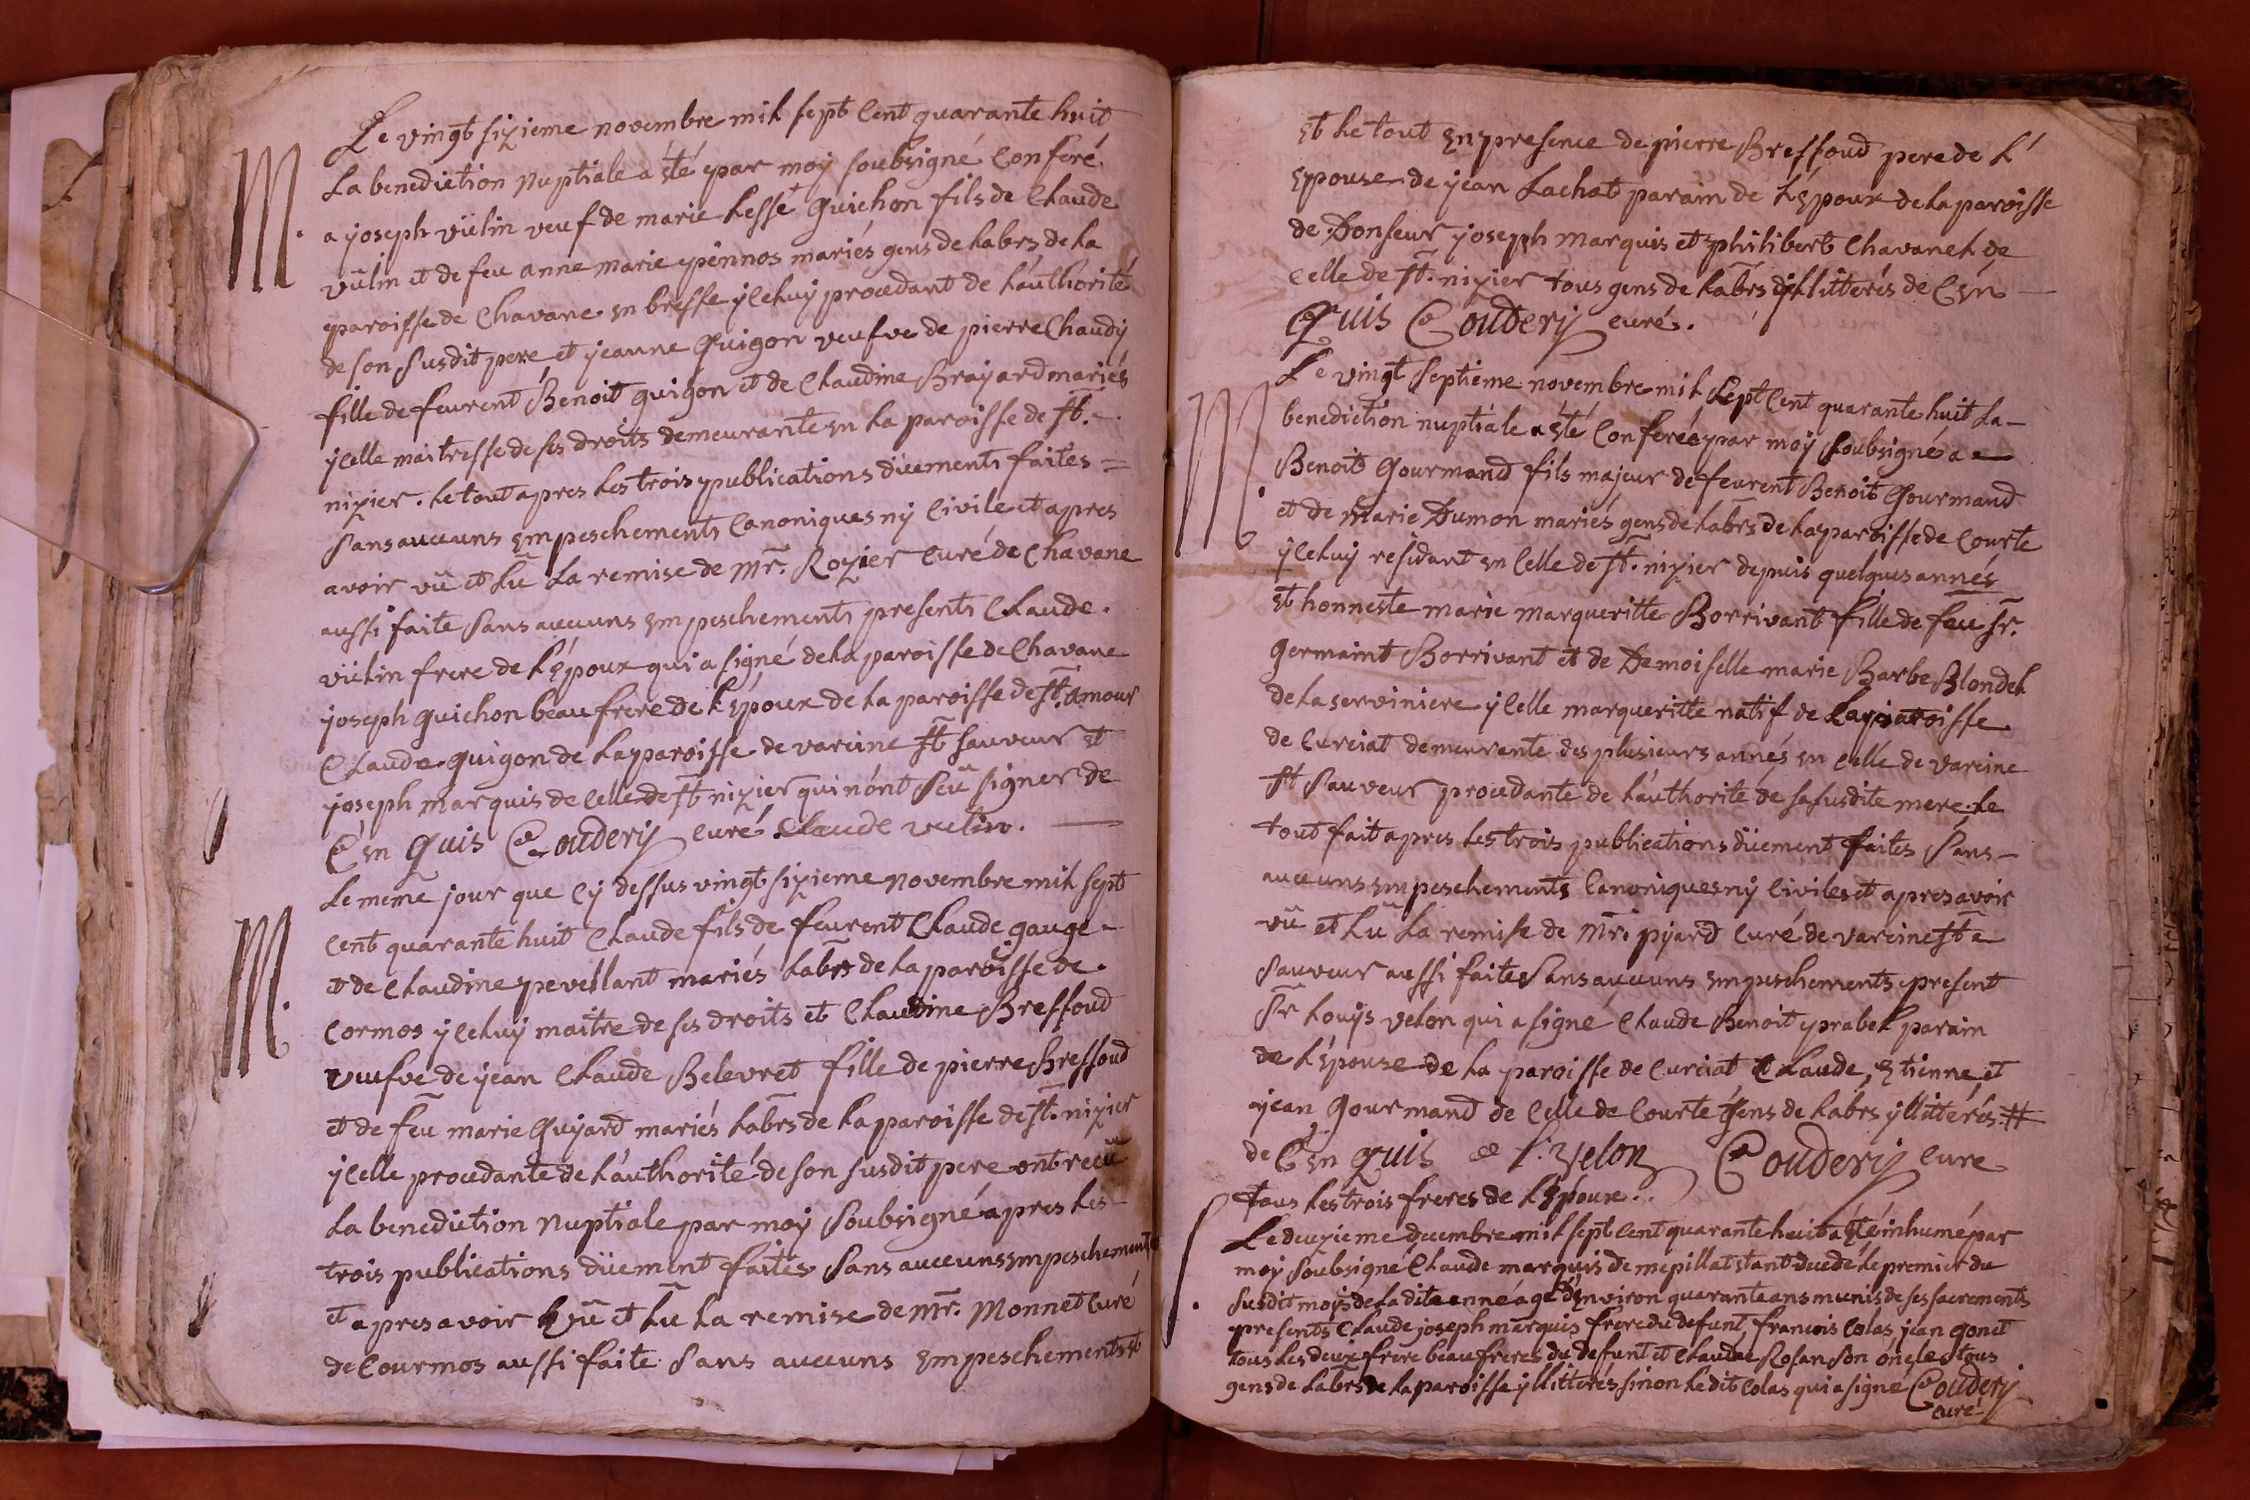 Le vingt sixieme novembre mil sept Cent quarante huit
M. La benediction Nuptiale a été par moy soubsigné Conferé
a joseph vülin veuf de marie hesse + guichon fils de Claude
vülin et de feu anne marie pennos mariés gens de labrs de la
paroisse de Chavane en bresse yceluy procedant de l'authorité
de son susdit pere et jeanne guigon veufve de pierre Chaudy
fille de feurent Benoit guigon et de Claudine Brayard mariés
ycelle maitresse de ses droits demeurante en la paroisse de st.
nizier. le tout apres les trois publications düement faites =
sans aucuns empeschements Canoniques ny Civile et apres
avoir vü et lu la remise de mr. Rozier Curé de Chavane
aussi faite sans aucuns empeschements presents Claude
vülin frere de l'époux qui a signé de la paroisse de Chavane
joseph guichon beau frere de l'époux de la paroisse de st. amour
Claude guigon de la paroisse de vareine st sauveur et
joseph marquis de Celle de st nizier qui n'ónt sceu signer de
C en quis Couderij curé Claude vulin.
Le meme jour que Cy dessus vingt sixieme novembre mil sept
M. Cent quarante huit Claude fils de feurent Claude gauge
et de Claudine pevellant mariés labrs de la paroisse de
Cormos yceluy maitre de ses droits et Claudine Bressoud
veufve de jean Claude Belevret fille de pierre Bressoud
et de feu marie Guyard mariés labrs de la paroisse de st. nizier
ycelle procedante de l'authorité de son susdit pere ont recu
la benediction Nuptiale par moy soubsigné apres les
trois publications düement faites sans aucuns empeschements
et apres avoir vü et lu la remise de mr. Monnet Curé
de Courmos aussi faite sans aucuns empeschements et
et le tout en presence de pierre Bressoud pere de l'
epouse de jean Lachat parain de l'époux de la paroisse
de Donseur joseph marquis et philibert Chavanel de
celle de st. nizier tous gens de labrs illitterés de C en
quis Couderij curé.
Le vingt septieme novembre mil sept Cent quarante huit la
M. benediction nuptiale a été Conferée par moy soubsigné a
Benoit Gourmand fils majeur de feurent Benoit Gourmand
et de marie Dumon mariés gens de labrs de la paroisse de Courte
ycehuy residant en Celle de st. nizier depuis quelques annés
et honneste marie marqueritte Borrivant fille de feu sr.
germaint Borrivant et de Demoiselle marie Barbe Blondel
de la serviniere ycelle marqueritte natif de la paroisse
de Curciat demeurante des plusieurs annés en celle de vareine
st sauveur procedante de l'authorité de sa susdite mere. le
tout fait apres les trois publications düement faites sans
aucuns empeschements Canoniques ny Civiles et apres avoir
vü et lu la remise de Mr. pyard Curé de vareine st
sauveur aussi faite sans aucuns empeschements present
sr louys velon qui a signé Claude Benoit prabel parain
de l'épouse de la paroisse de Curciat Claude, Etienne et
jean Gourmand de Celle de Courte gens de labrs yllitterés #
de C en quis l. velon Couderij Cure
tous les trois freres de l'époux.
Le deuxieme decembre mil sept Cent quarante huit a été inhumé par
moy soubsigné Claude marquis de mepillat etant decedé le premier du
susdit moys de la dite anné agé d'environ quarante ans munis de ses sacrements
presents Claude joseph marquis frere du defunt francois Colas jean gonet
tous les deux frere beau freres du defunt et Claude Rosan son óncle tous
gens de labrs de la paroisse yllitterés sinon le dit Colas qui a signé Couderij
curé